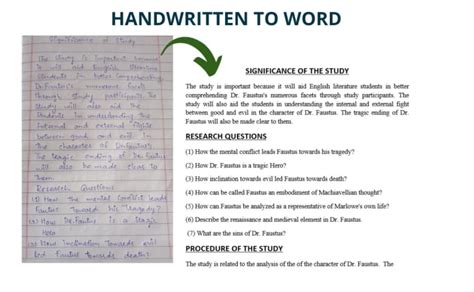 HANDWRITTEN TO WORD
Significance of Study
The study is important because
it will aid English literature
students in better comprehending
Dr. Faustus's numerous facets
through study participants. The
study will also aid the
students in understanding the
internal and external fight
between good and evil in
the character of Dr. Faustus.
The tragic ending of Dr. Faustus
will also be made clear to
them.
Research Questions
(1) How the mental conflict leads
Faustus toward his tragedy?
(2) How Dr. Faustus is a tragic
Hero
(3) How inclination towards evil
led Faustus towards death?
SIGNIFICANCE OF THE STUDY
The study is important because it will aid English literature students in better
comprehending Dr. Faustus's numerous facets through study participants. The
study will also aid the students in understanding the internal and external fight
between good and evil in the character of Dr. Faustus. The tragic ending of Dr.
Faustus will also be made clear to them.
RESEARCH QUESTIONS
(1) How the mental conflict leads Faustus towards his tragedy?
(2) How Dr. Faustus is a tragic Hero?
(3) How inclination towards evil led Faustus towards death?
(4) How can be called Faustus an embodiment of Machiavellian thought?
(5) How can Faustus be analyzed as a representative of Marlowe's own life?
(6) Describe the renaissance and medieval element in Dr. Faustus.
(7) What are the sins of Dr. Faustus?
PROCEDURE OF THE STUDY
The study is related to the analysis of the of the character of Dr. Faustus. The